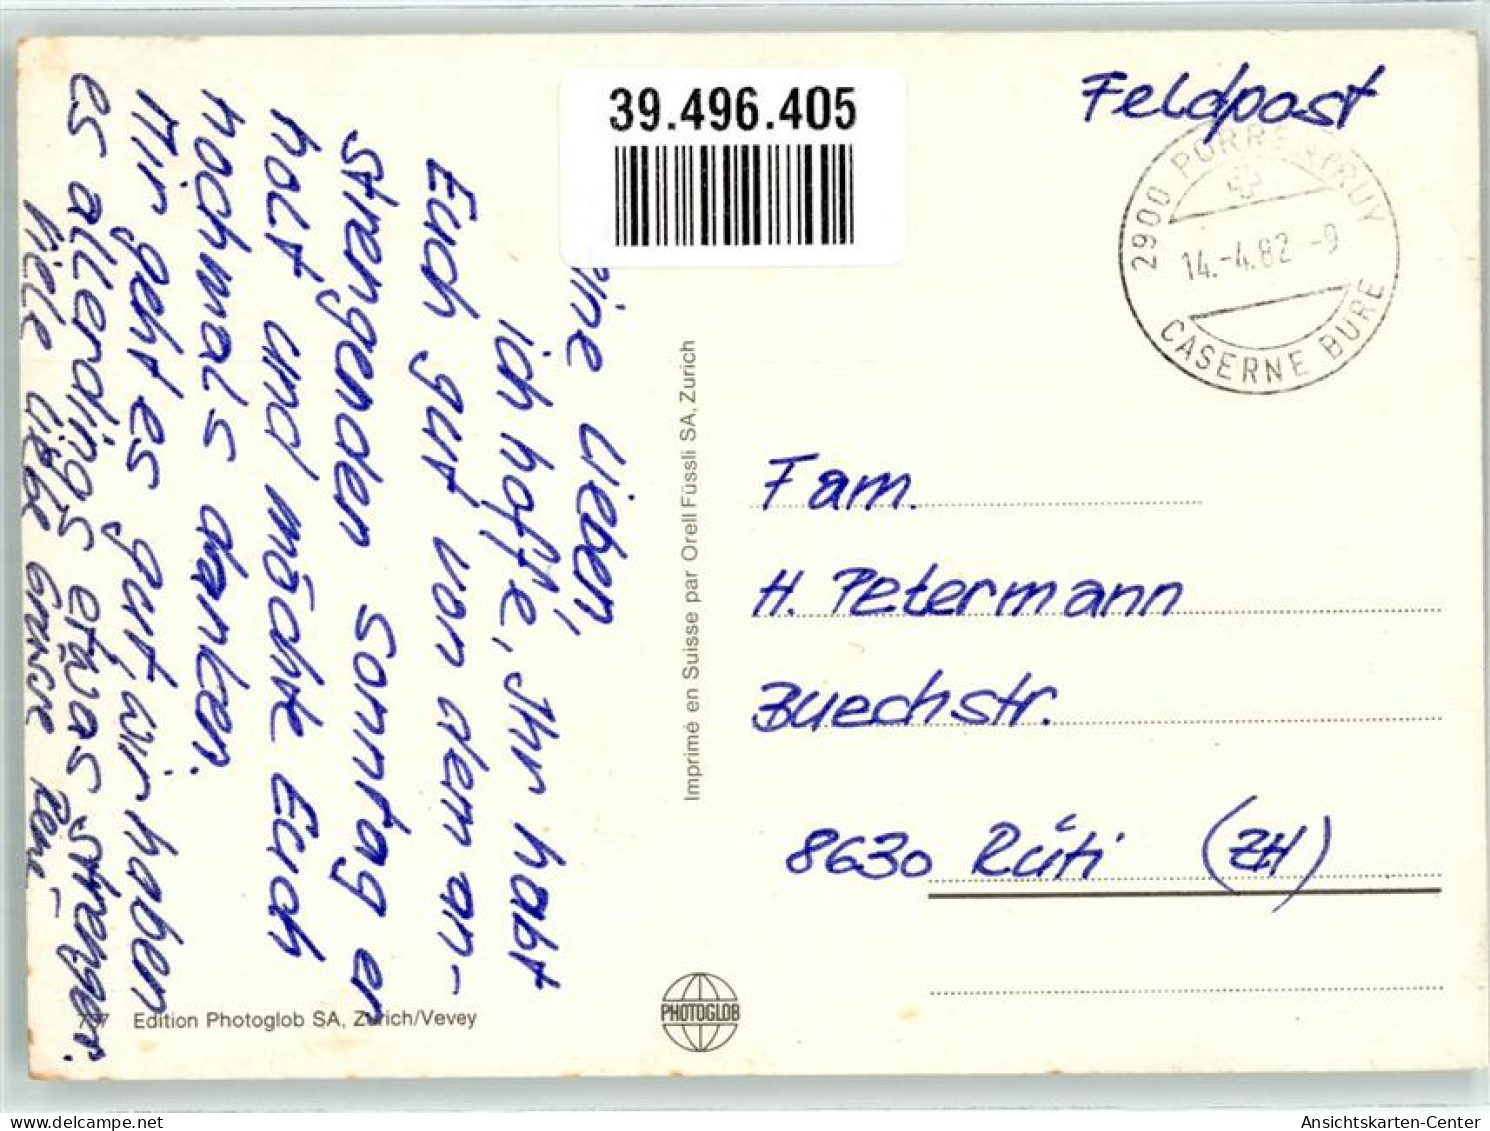 39.496.405
Feldpost
2900 PORRENTRUY
14.-4.82.-9
CASERNE BURE
ine Lieben,
ich hoffe, Ihr habt
Euch gut von dem an-
strengenden Sonntag er
holt und möchte Euch
nochmals danken.
Mir geht es gut, wir haben
es allerdings etwas strenger.
Viele liebe Grüsse René
Imprimé en Suisse par Orell Füssli SA, Zurich
Fam.
H. Petermann
Buechstr.
8630 Rüti (ZH)
Edition Photoglob SA, Zurich/Vevey
PHOTOGLOB
Ansichtskarten-Center